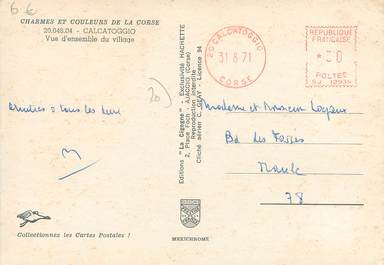 6 €
CHARMES ET COULEURS DE LA CORSE
20.046.04 - CALCATOGGIO
Vue d'ensemble du village
20 CALCATOGGIO
31 8 71
CORSE
REPUBLIQUE
FRANÇAISE
* 30
POSTES
20
Amitiés à tous les deux
Editions "La Cigogne" - Exclusivité HACHETTE
2, Place Foch - AJACCIO (Corse)
Reproduction interdite
Cliché aérien C. GEAY - Licence 94
Madame et Monsieur
Bd des Fossés
78
Collectionnez les Cartes Postales !
MEXICHROME